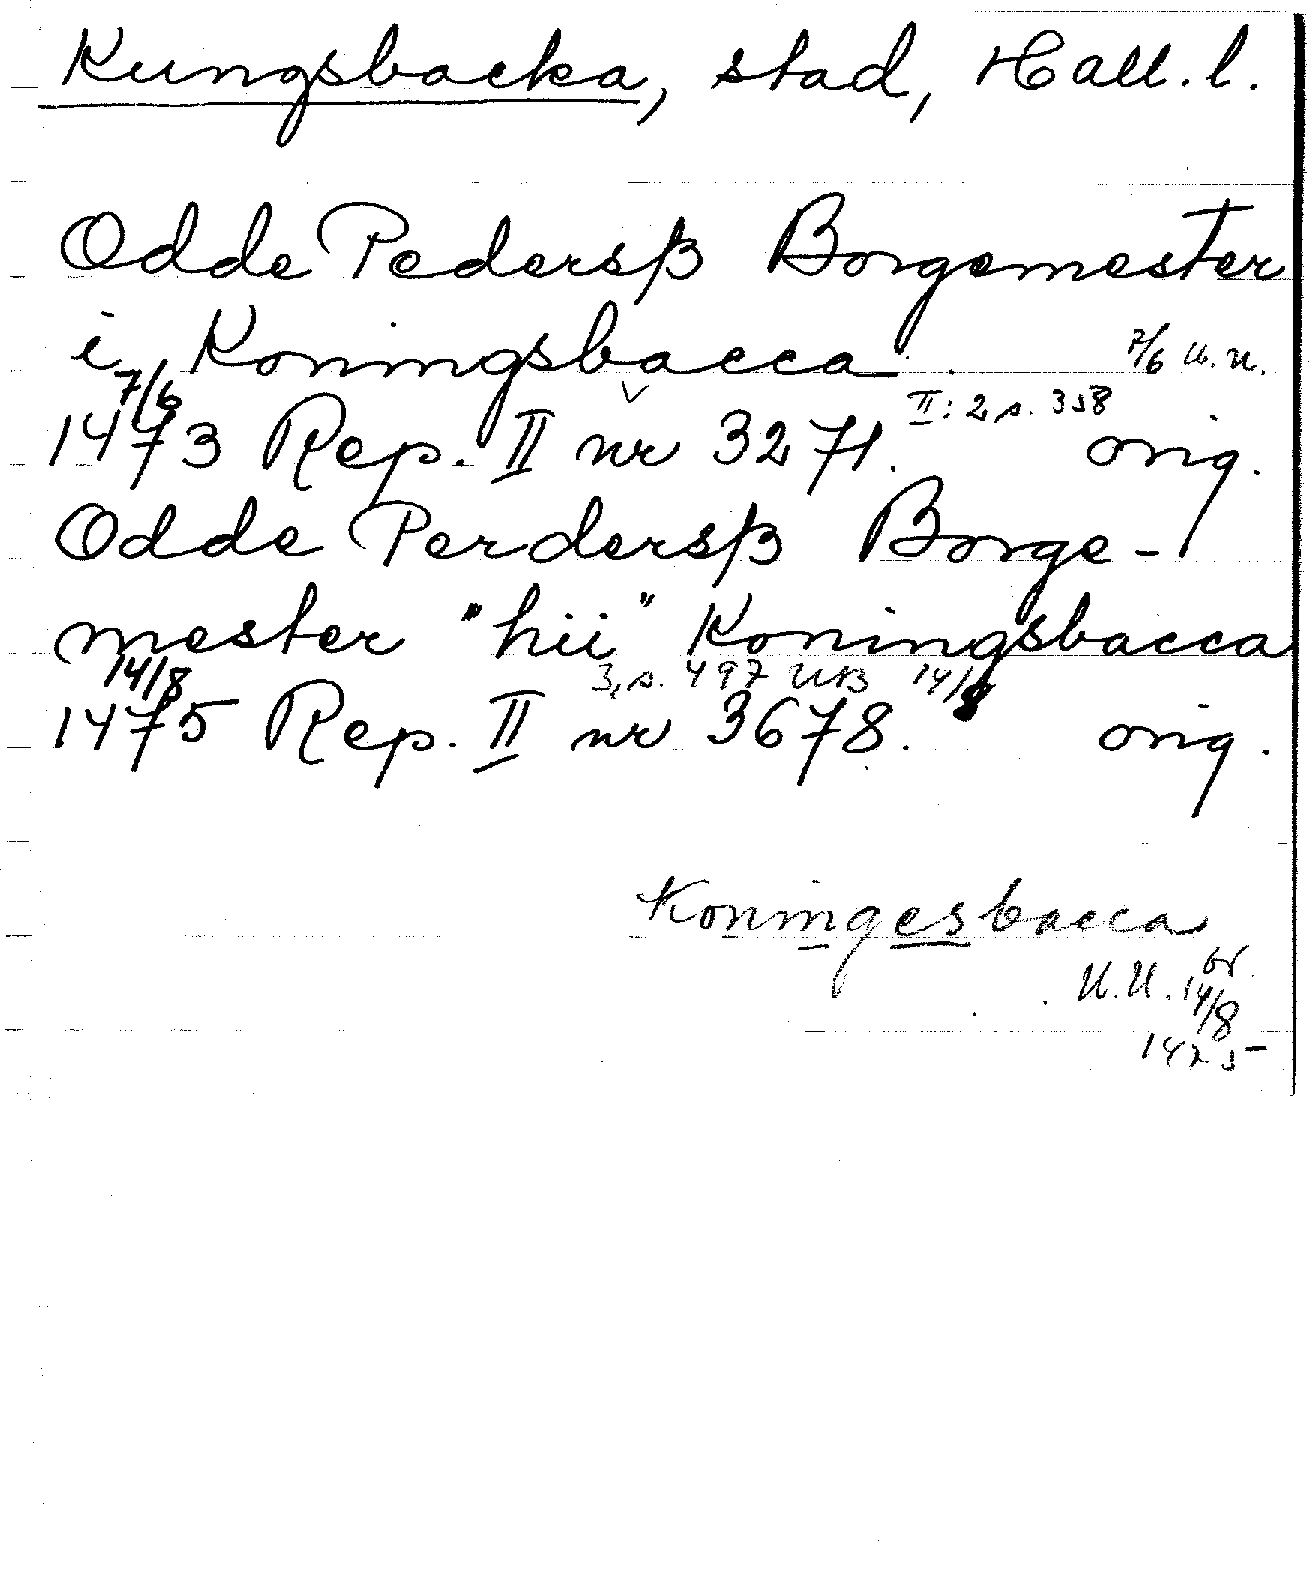 Kungsbacka, stad, Hall. l.
Odde Pedersß Borgemester
i Koningsbacca 7/6 U.U.
7/6 II: 2 s. 358
1473 Rep. II nr 3271. orig.
Odde Perdersß Borge-
mester "hii" Koningsbacca
14/8 3, s. 497 UB 14/8
1475 Rep. II nr 3678. orig.
Koningesbacca
U.U. br.
14/8
1475